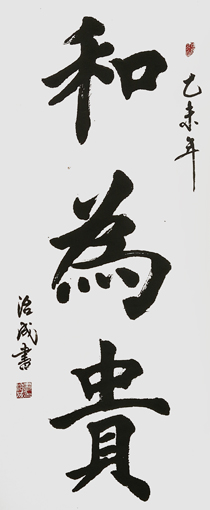 乙未年
和為貴
治成書